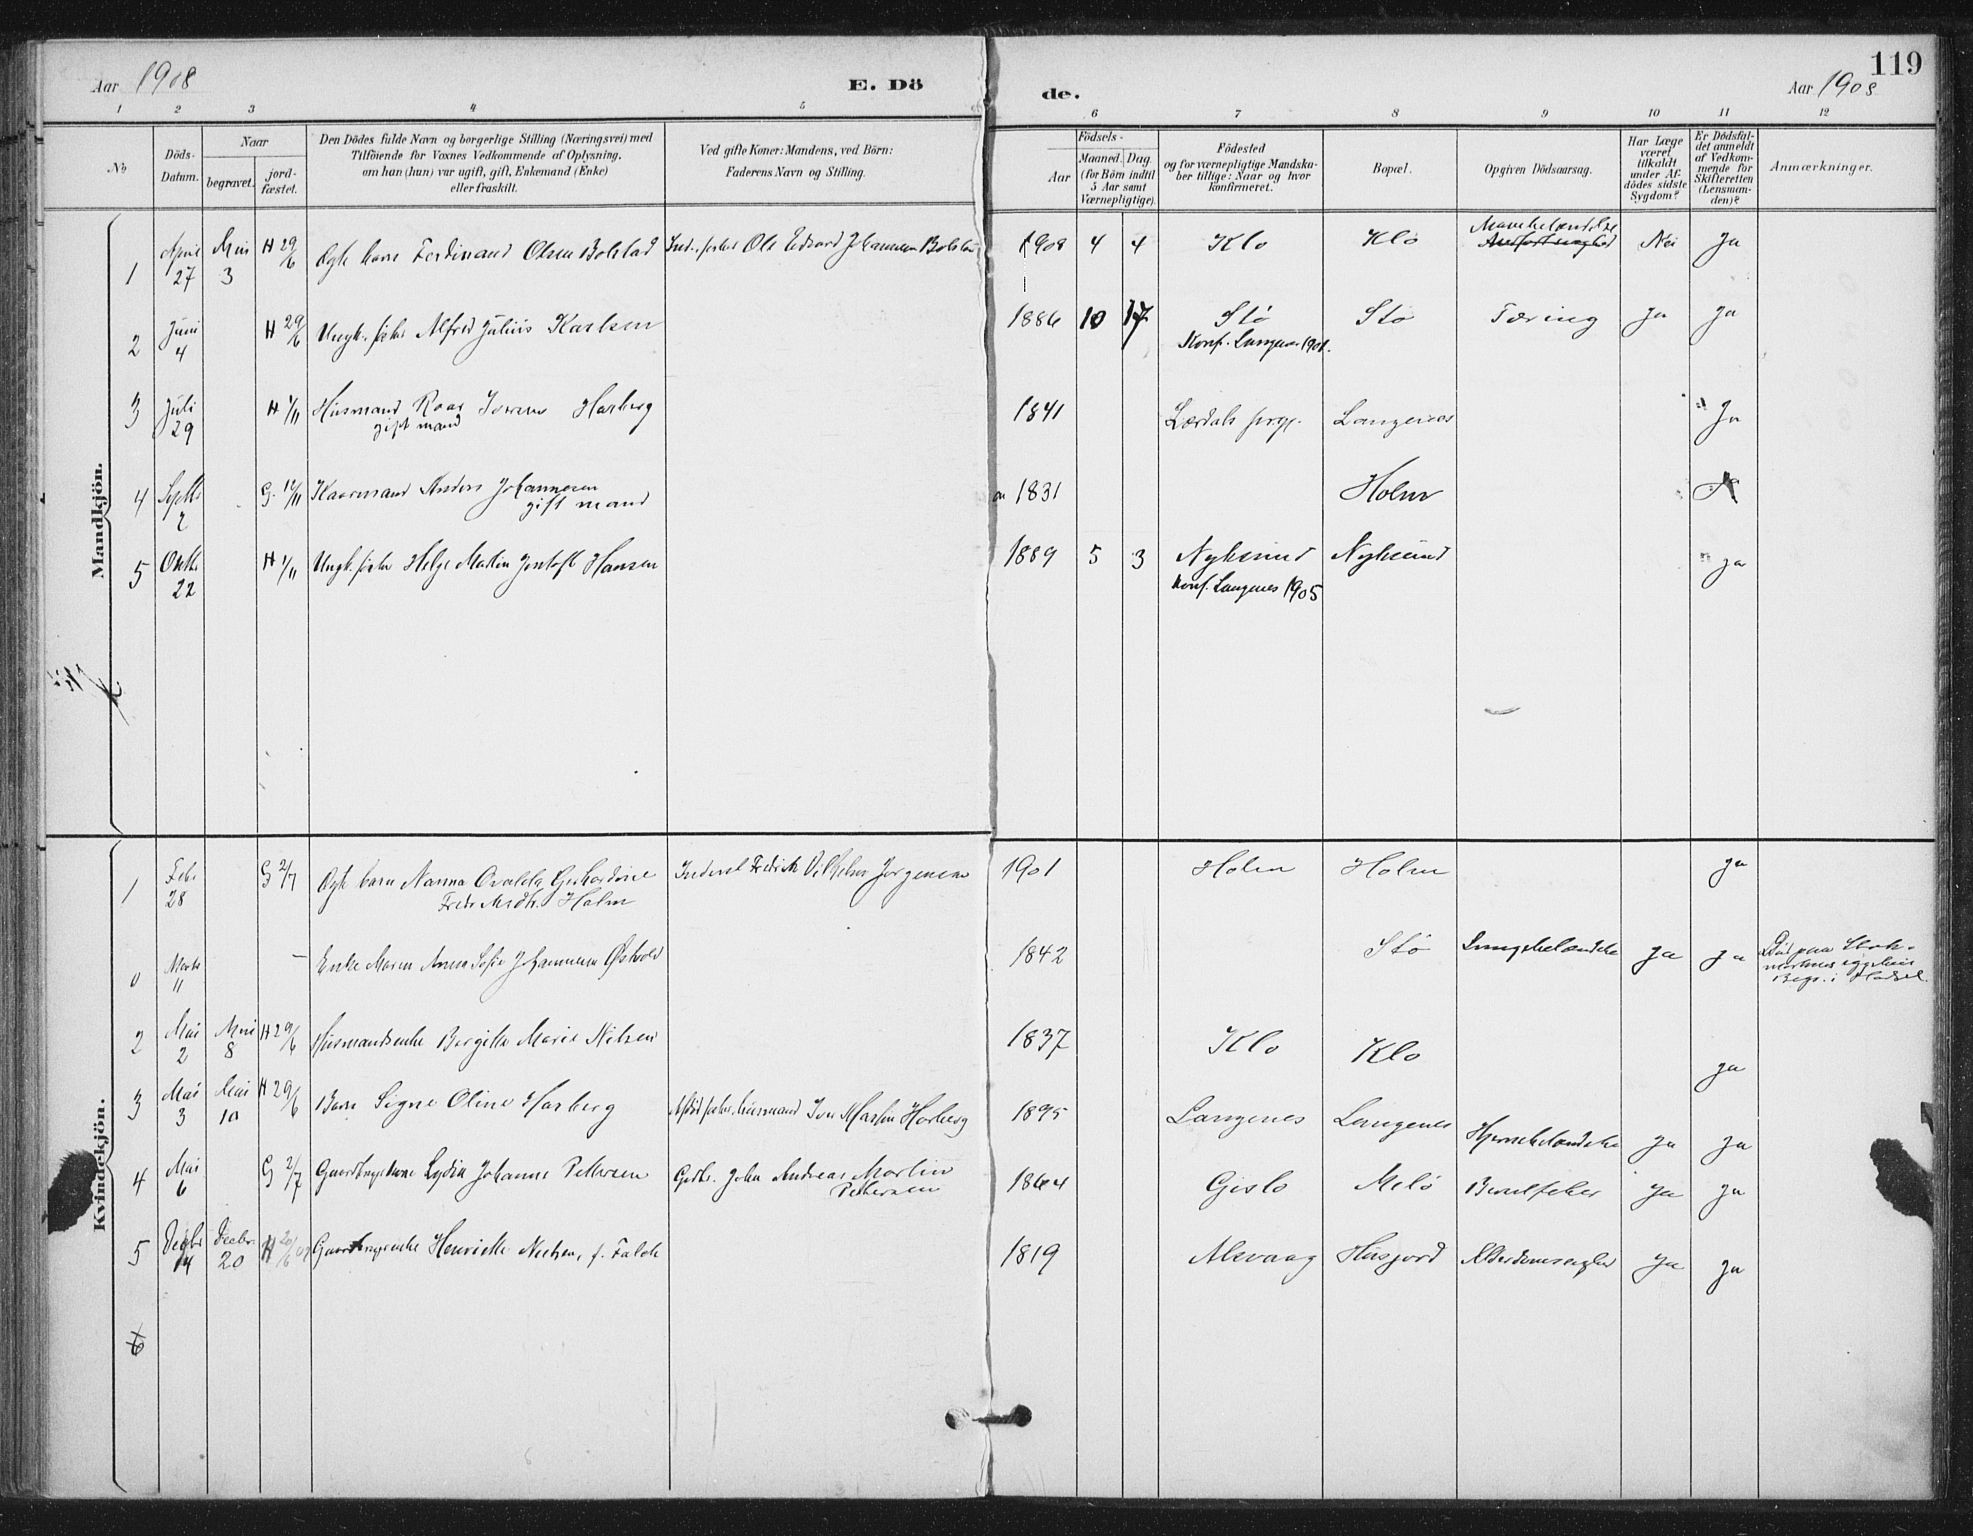 119
Aar 1908
E. Dö
de.
Aar 1908
1 2 3 4 5 6 7 8 9 10 11 12
No
Döds-
Datum.
Naar
begravet.
jord-
fæstet.
Den Dödes fulde Navn og borgerlige Stilling (Næringsvei) med
Tilföiende for Voxnes Vedkommende af Oplysning,
om han (hun) var ugift, gift, Enkemand (Enke)
eller fraskilt.
Ved gifte Koner: Mandens, ved Börn:
Faderens Navn og Stilling.
Födsels-
Aar
Maaned. Dag.
(for Börn indtil
5 Aar samt
Værnepligtige).
Födested
og for værnepligtige Mandska-
ber tillige: Naar og hvor
konfirmeret.
Bopæl.
Opgiven Dödsaarsag.
Har Læge
været
tilkaldt
under Af-
dödes sidste
Sygdom?
Er Dödsfal-
det anmeldt
af Vedkom-
mende for
Skifteretten
(Lensman-
den)?
Anmærkninger.
Mandkjön.
1 April 27 Mai 3 H 29/6 Ægte barn Ferdinand Olsen Bolstad Ole Edvard Johannesen 1908 4 4 Klo Klo Nei Ja
2 Juni 4 H 29/6 Ungk. fisker Alfred Julius Karlsen 1886 10 17 Stö Stö Tæring Ja Ja
Konf. Langenes 1901.
3 Juli 29 H 1/11 Husmand Roar Iversen Harberg 1841 Lærdals prgj. Langenes Ja
gift mand
4 Septbr 2 G. 12/11 Kaarmand Anders Johannesen 1831 Holm
gift mand
5 Oktbr 22 H 1/11 Ungk. fisker Helge Martin Hansen 1889 5 3 Nyksund Nyksund Ja
Konf. Langenes 1905
Kvindekjön.
1 Febr 28 G 2/7 Ægte barn Nanna Ovalda Gerhardine Fredrik Vilhelm Jörgensen 1901 Holm Holm Ja
Holm
0 Marts 11 - Enke Maren Anna Sofie Johannesen 1842 Stö Lungebetændelse Ja Ja Död paa Stok-
marknes sygehus
Begr. i Hadsel.
2 Mai 2 Mai 8 H 29/6 Husmandsenke Bergitte Marie Nilsen 1837 Klo Klo Ja
3 Mai 3 Mai 10 H 29/6 Barn Signe Oline Harberg husmand Martin Harberg 1895 Langenes Langenes Hjernebetændelse Ja Ja
4 Mai 6 G 2/7 Lydia Johanne Pettersen Gbr. John Andreas Martin 1864 Gislö Melö Barselfeber Ja Ja
Pettersen
5 Decbr 14 Decbr 20 H 20/6 09 Henriette Nielsen, f. Falch 1819 Alsvaag Husjord Alderdomssvaghed Ja Ja
6